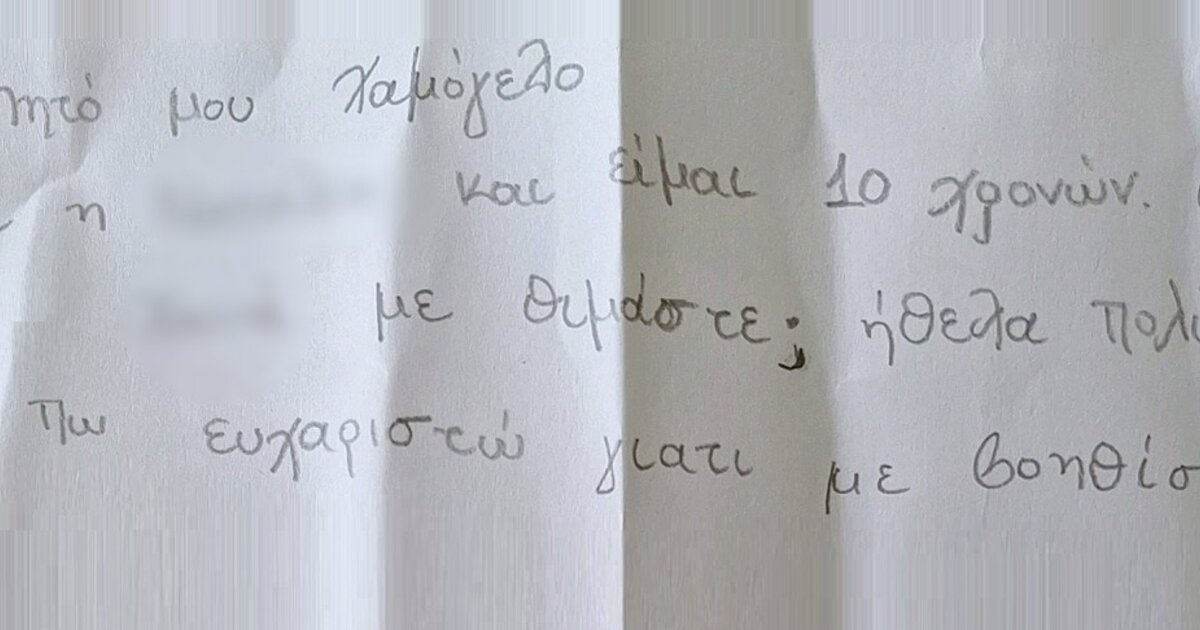 μου Χαμόγελο
η και είμαι 10 χρονών.
με θιμάστε; ήθελα
πω ευχαριστώ γιατι με